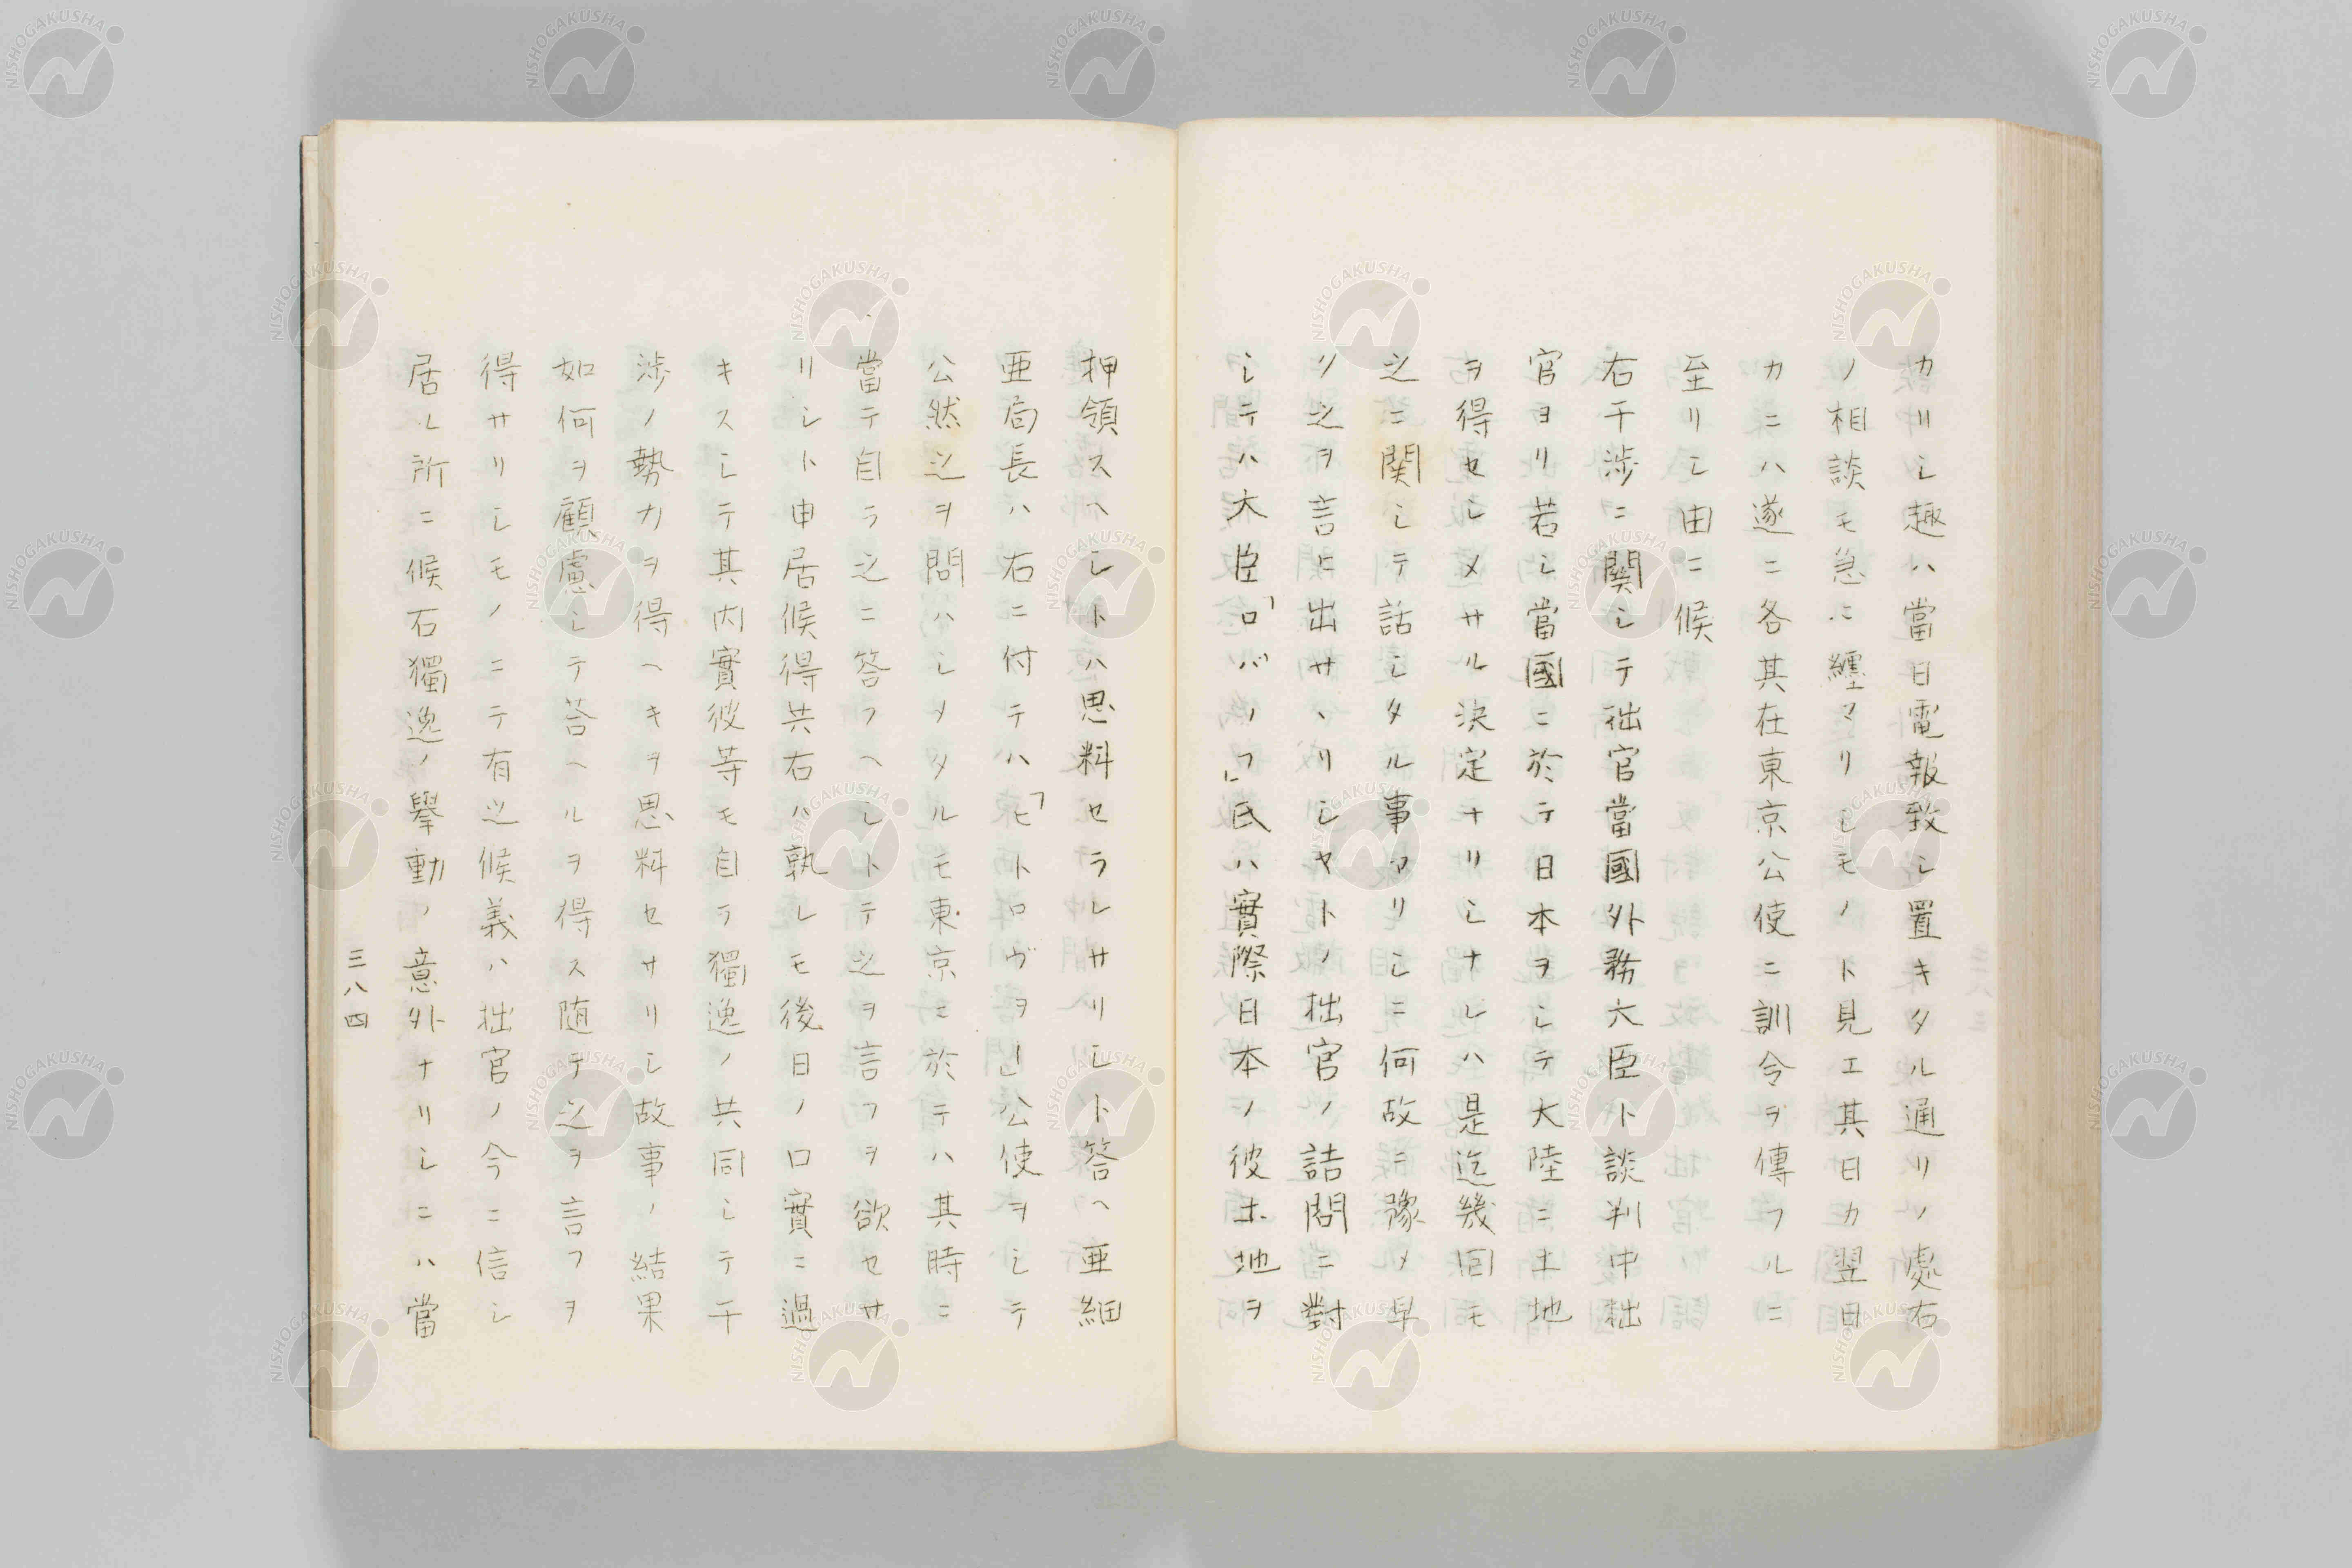 カリシ趣ハ當日電報致シ置キタル通リノ處右
ノ相談モ急ニ纒マリシモノト見エ其日カ翌日
カニハ遂ニ各其在東京公使ニ訓令ヲ傳フルニ
至リシ由ニ候
右干渉ニ関シテ拙官當國外務大臣ト談判中拙
官ヨリ若シ當國ニ於テ日本ヲシテ大陸ニ土地
ヲ得セシメサル決定ナリシナレハ是迄幾回モ
之ニ関シテ話シタル事アリシニ何故ニ豫メ早
ク之ヲ言ヒ出サヽリシヤトノ拙官ノ詰問ニ對
シテハ大臣「ロバノフ」氏ハ實際日本ノ彼土地ヲ
押領スヘシトハ思料セラレサリシト答ヘ亜細
亜局長ハ右ニ付テハ「ヒトロヴヲ」公使ヲシテ
公然之ヲ問ハシメタルモ東京ニ於テハ其時ニ
當テ自ラ之ニ答フヘシトテ之ヲ言フヲ欲セサ
リシト申居候得共右ハ孰レモ後日ノ口實ニ過
キスシテ其内實彼等モ自ラ獨逸ノ共同シテ干
渉ノ勢力ヲ得ヘキヲ思料セサリシ故事ノ結果
如何ヲ顧慮シテ答ヘルヲ得ス随テ之ヲ言フヲ
得サリシモノニテ有之候義ハ拙官ノ今ニ信シ
居ル所ニ候右獨逸ノ擧動ノ意外ナリシニハ當
三八四
NISHOGAKUSHA